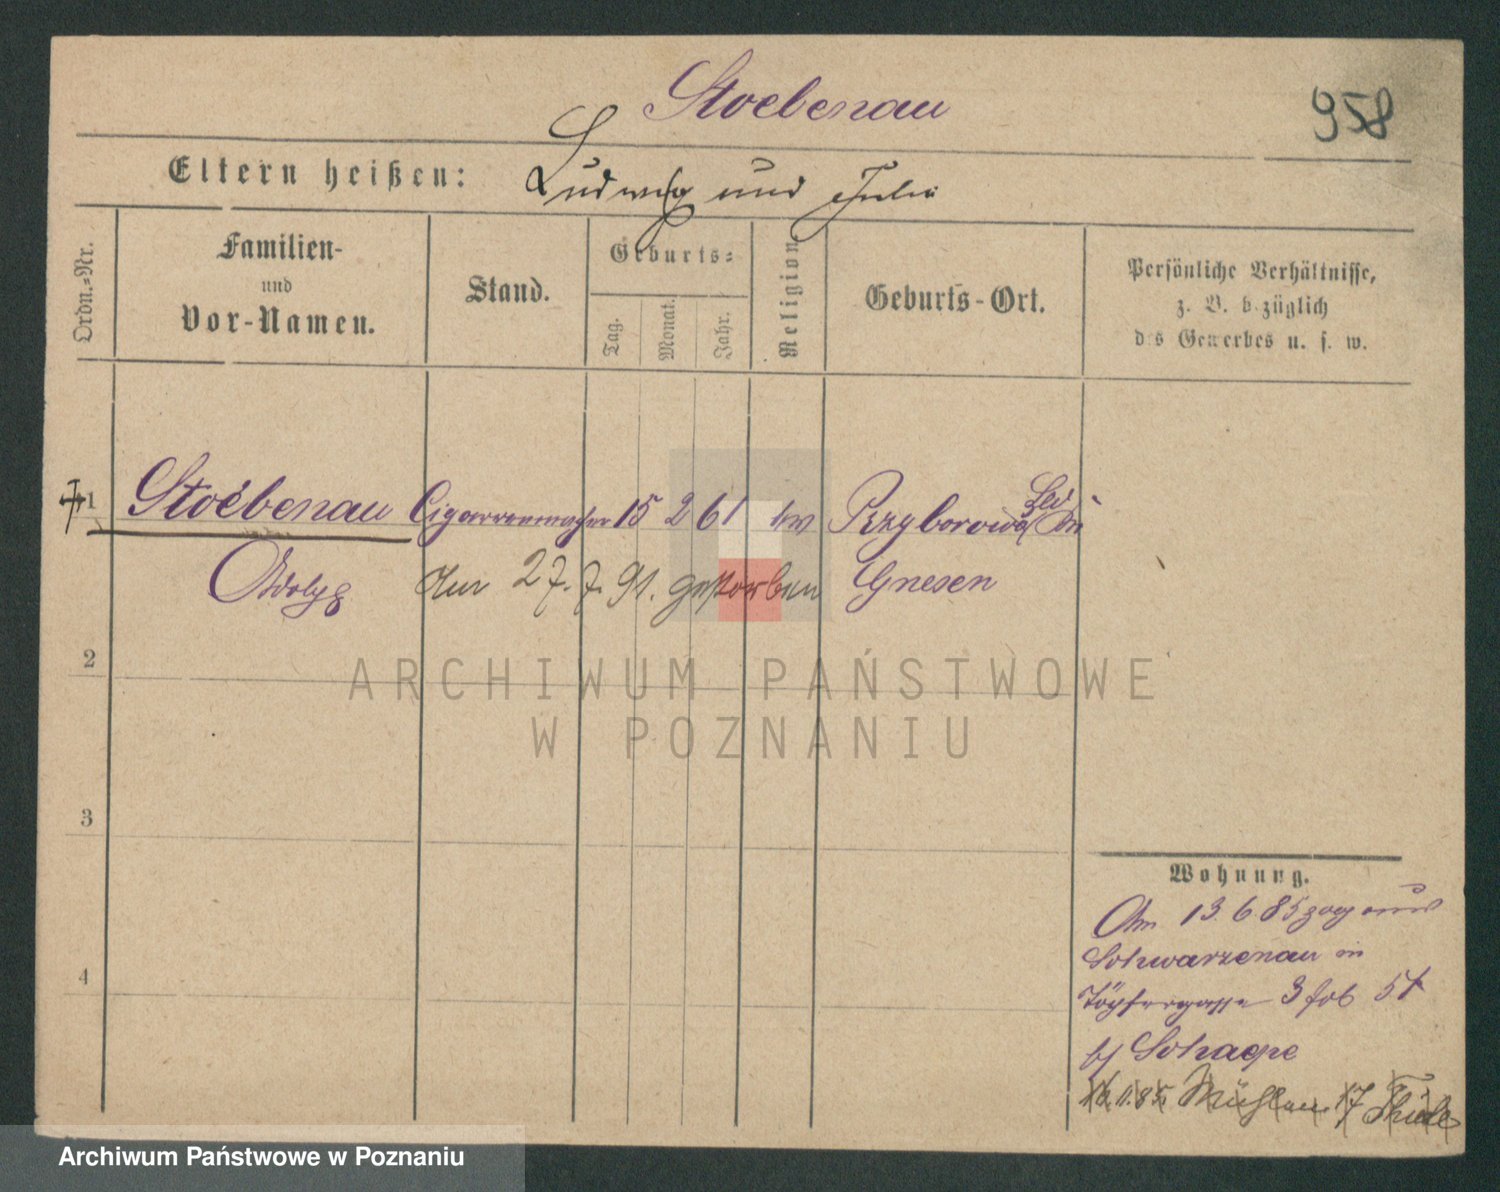 Stoebenau
958
Eltern heißen: Ludwig und Julie
Ordn.-Nr.
Familien-
und
Vor-Namen.
Stand.
Geburts-
Tag.
Monat.
Jahr.
Religion.
Geburts-Ort.
Persönliche Verhältnisse,
z. B. bezüglich
des Gewerbes u. s. w.
1 Stoebenau Cigarrenmacher 15 2 61 Przyborowo bei
Adolf Am 27. 7. 91. gestorben Gnesen
2
ARCHIWUM PAŃSTWOWE
W POZNANIU
3
4
Wohnung.
Am 13 6 85 zog aus
Schwarzenau in
Töpfergasse 3
Schaepe
11. 85. Mühlen 17 Thiele
Archiwum Państwowe w Poznaniu